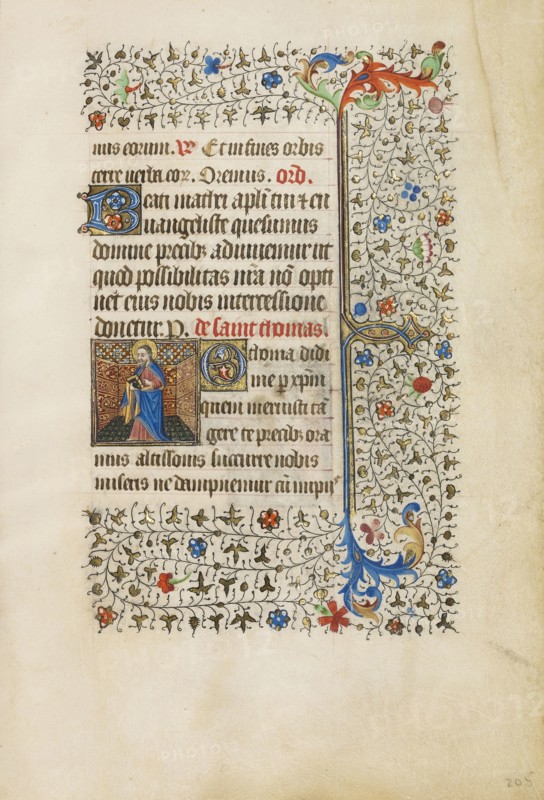 mis eorum. V Et in fines orbis
terre verba eoꝝ. Oremus. orõ.
Beati mathei apłi tui & eu
uangeliste quesumus
domine precibꝫ adiuvemur ut
quod possibilitas nr̃a nõ opti
net eius nobis intercessione
donetur. P. de saint thomas.
O thoma didi
me p xp̃m
quem meruisti tã
gere te precibꝫ ora
mus altissonis succurre nobis
miseris ne dampnemur cũ impijs
205